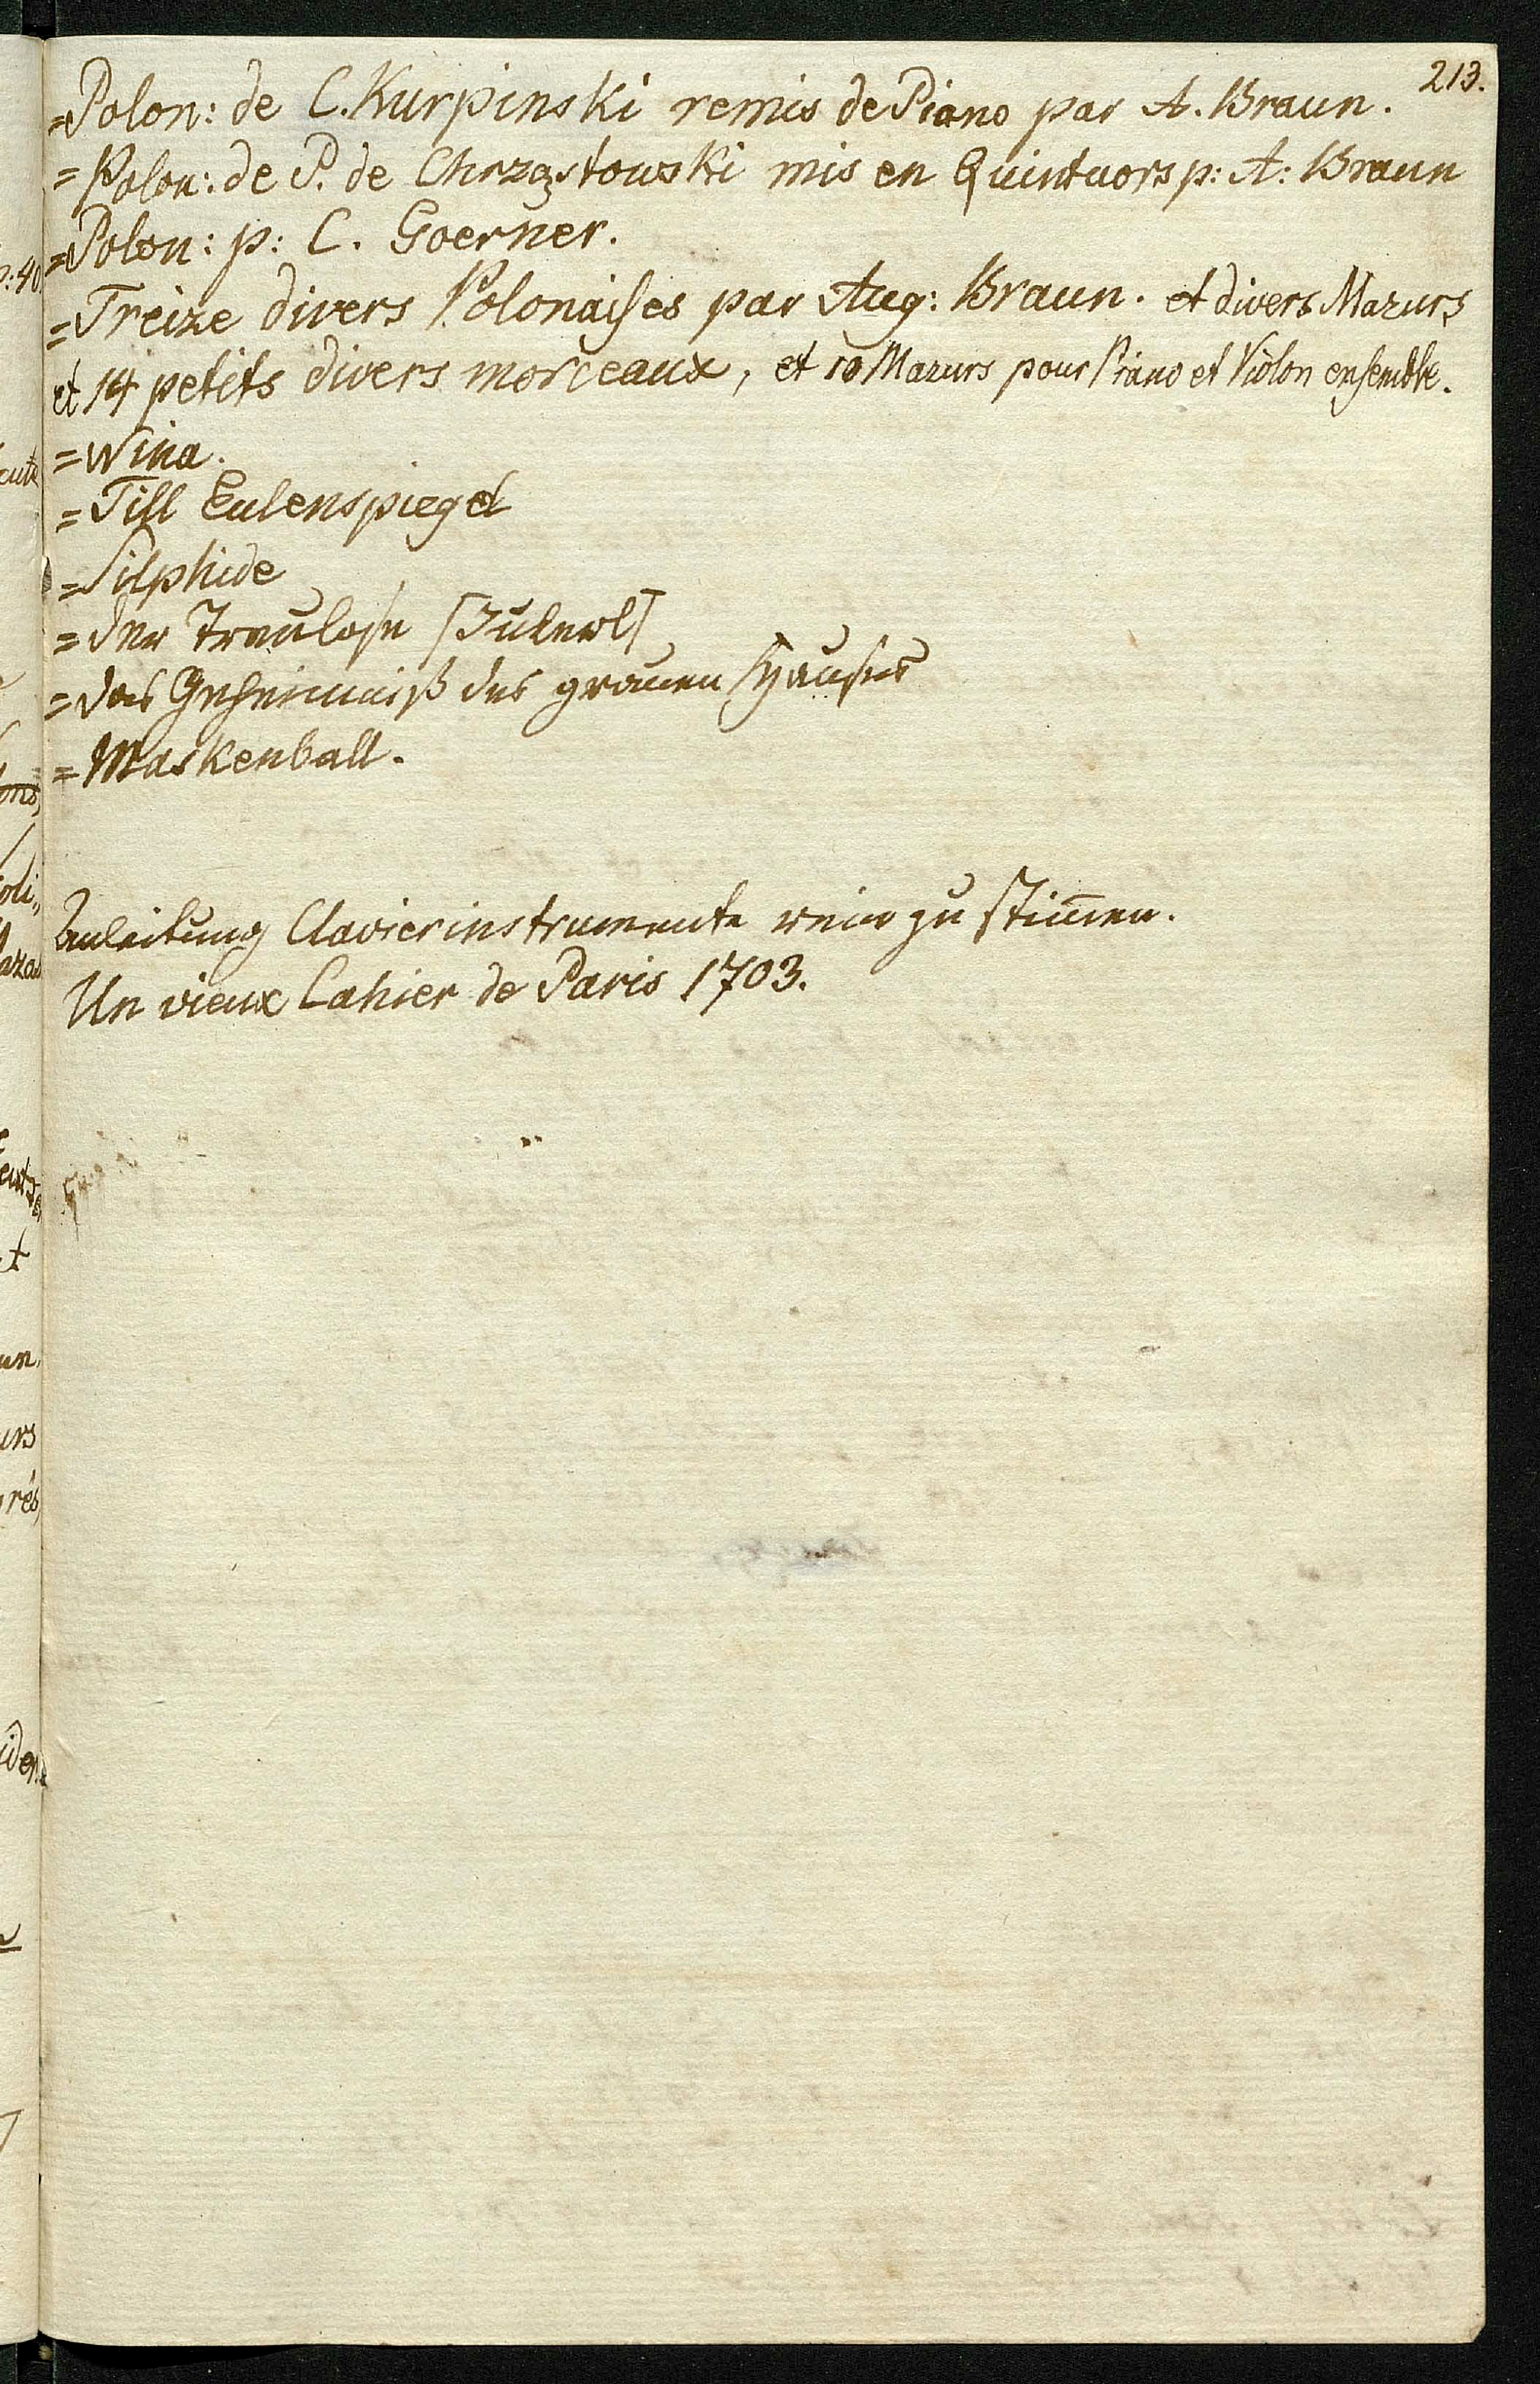 213.
=Polon: de C. Kurpinski remis de Piano par A. Braun.
=Polon: de P. de Chrząstowski mis en Quintuors p: A: Braun
=Polon: p: C. Goerner.
=Treize divers Polonaises par Aug: Braun. et divers Mazurs
et 14 petits divers morceaux, et 10 Mazurs pour Piano et Violon ensemble.
=Wina.
=Till Eulenspiegel
=Silphide
=Der Treulose
=Das Geheimniß des grauen Hauses
=Maskenball.
Anleitung Clavierinstrumente rein zu stim̄en.
Un vieux Cahier de Paris 1703.